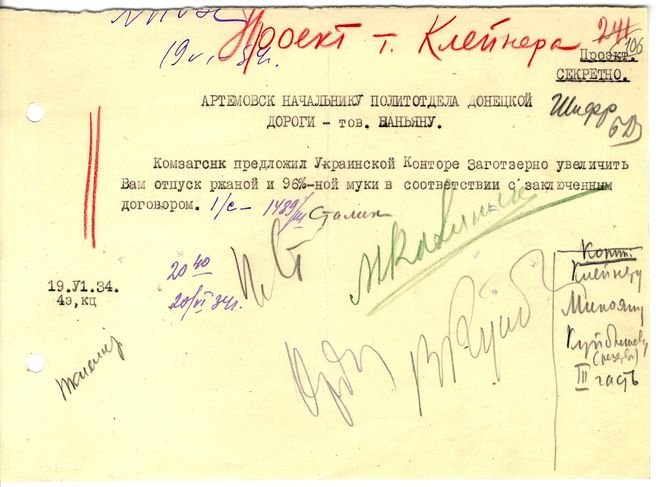 Проект т. Клейнера
19 VI 34г.
241
106
Проэкт.
СЕКРЕТНО.
Шифр
АРТЕМОВСК НАЧАЛЬНИКУ ПОЛИТОТДЕЛА ДОНЕЦКОЙ
ДОРОГИ – тов. ВАНЬЯНУ.
Комзагснк предложил Украинской Конторе Заготзерно увеличить
Вам отпуск ржаной и 96%-ной муки в соответствии с заключенным
договором. 1/с – 1489/ш Сталин
И. Ст
Л Каганович
19.VI.34.
4э,кц
20 40
20/VI 34г.
Копии:
Клейнеру
Микояну
Куйбышеву
(резервы)
III часть
В Куйб